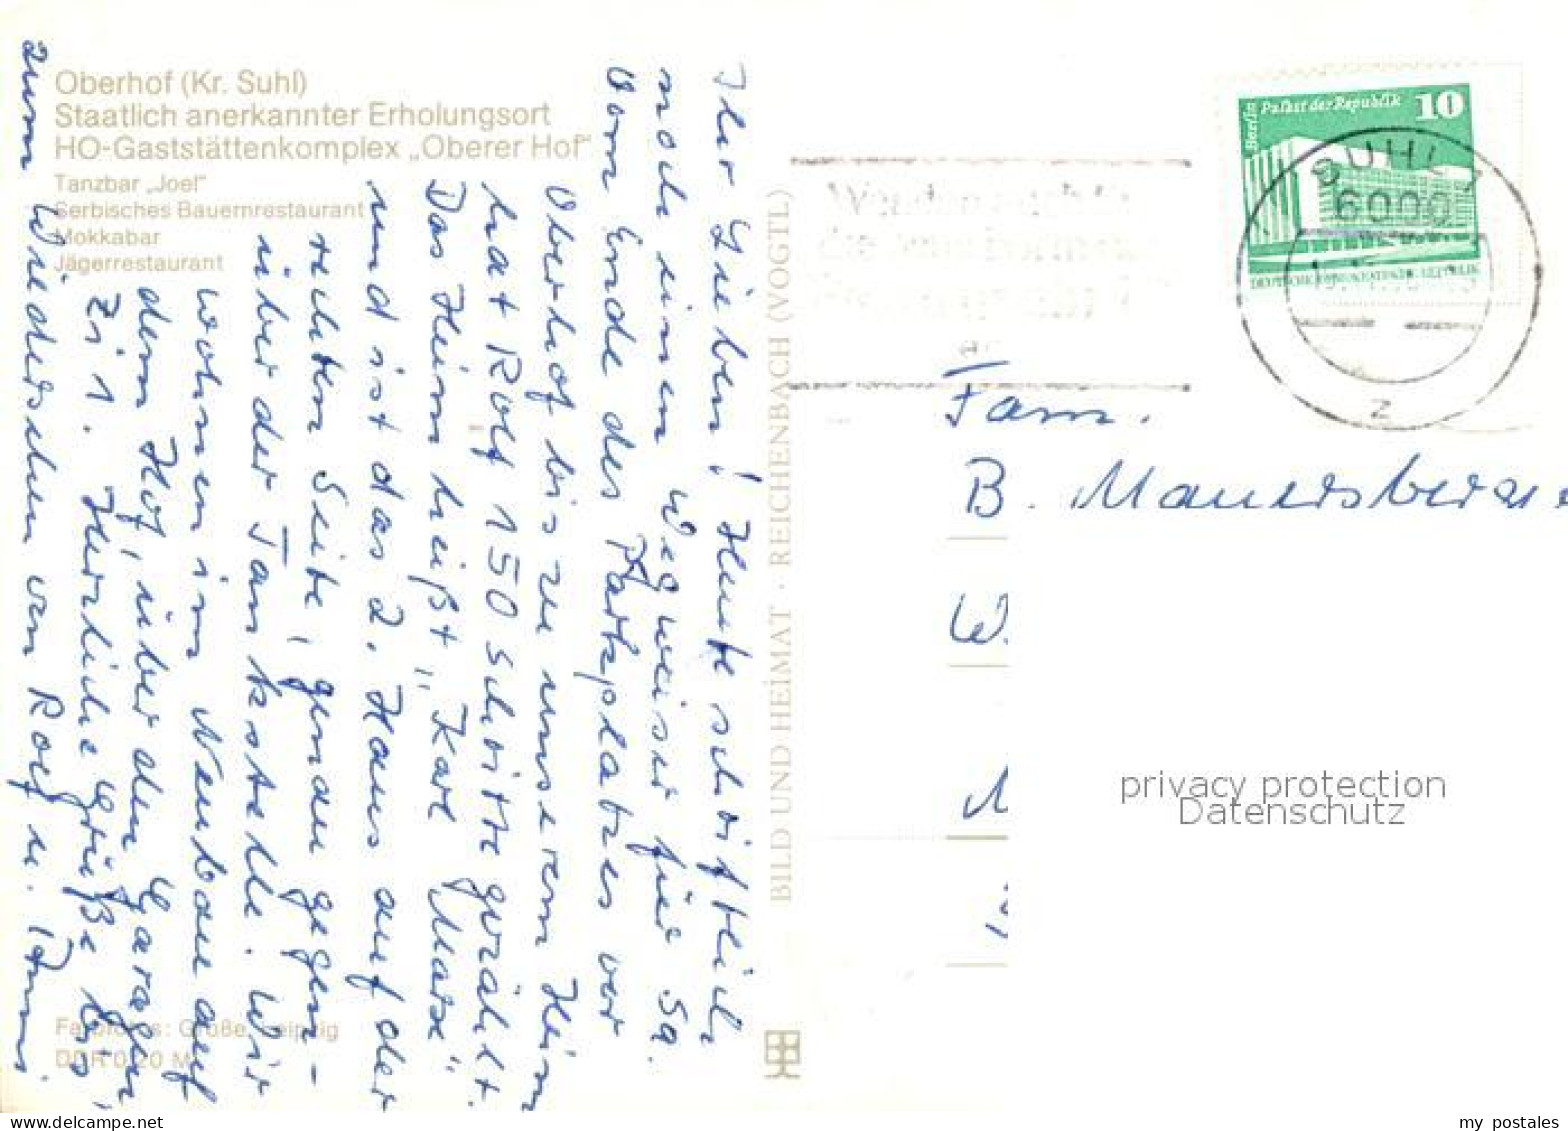 Oberhof (Kr. Suhl)
Staatlich anerkannter Erholungsort
HO-Gaststättenkomplex „Oberer Hof“
Tanzbar „Joel“
Serbisches Bauernrestaurant
Mokkabar
Jägerrestaurant
Ihr Lieben! Heute schriftlich
noch einen Wegweiser für Sa.
Vom Ende des Parkplatzes vor
Oberhof bis zu unserem Heim
hat Rolf 150 Schritte gezählt.
Das Heim heißt „Karl Marx“
und ist das 2. Haus auf der
rechten Seite, genau gegen-
über der Tankstelle. Wir
wohnen im Neubau auf
dem Hof, über den Garagen,
Zi 1. Herzliche Grüße bis
zum Wiedersehen von Rolf u.
Farbfotos: Große, Leipzig
DDR 0,20 M
BILD UND HEIMAT · REICHENBACH (VOGTL)
Berlin Palast der Republik 10
DEUTSCHE DEMOKRATISCHE REPUBLIK
SUHL 1
6000
z
Fam.
B. Mauersberger
W.
privacy protection
Datenschutz
my postales